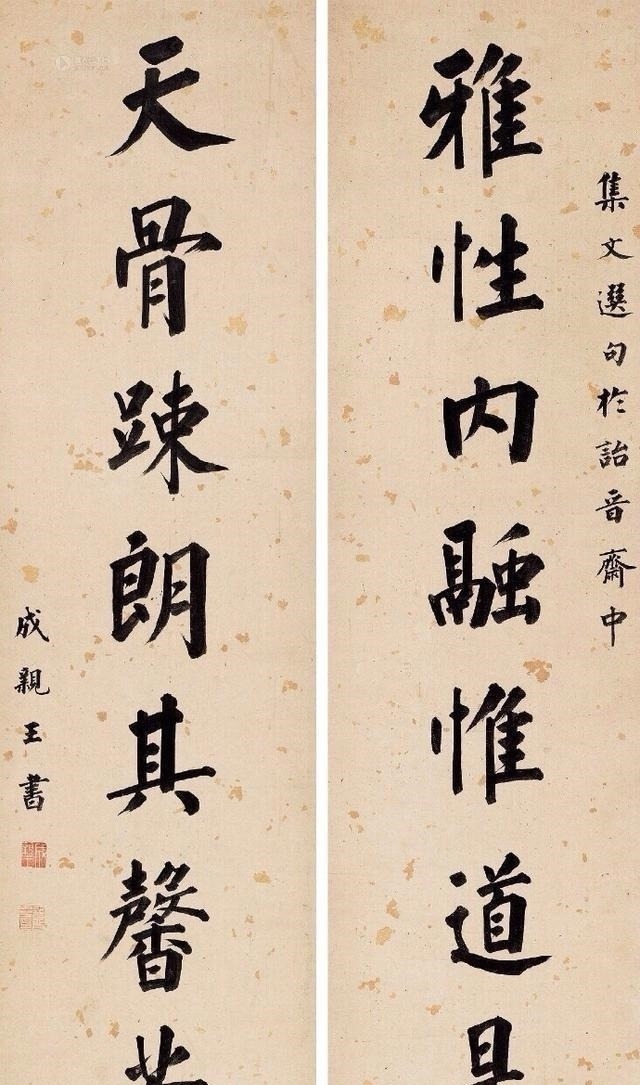 集文選句於詒晉齋中
雅性内融惟道
天骨踈朗其馨
成親王書